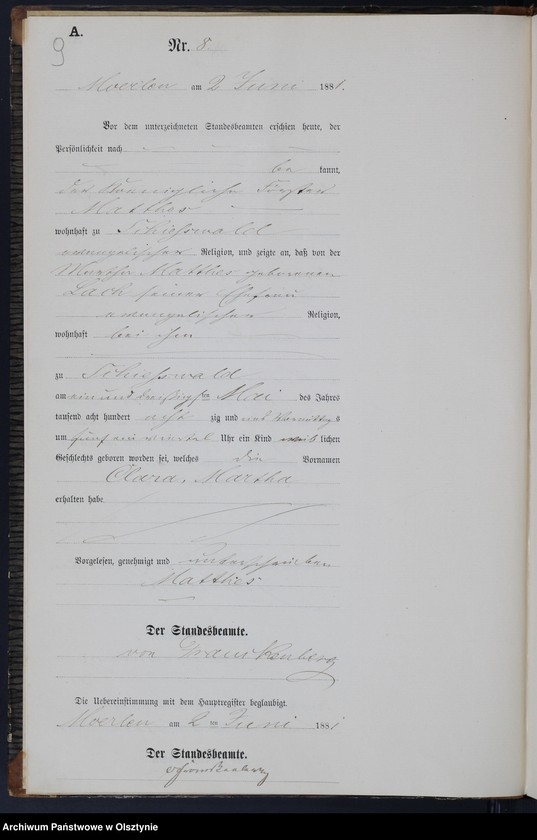 A.
9
Nr. 8
Moerlen am 2 Juni 1881.
Vor dem unterzeichneten Standesbeamten erschien heute, der
Persönlichkeit nach
be kannt,
der Koenigliche Förster
Matthes
wohnhaft zu Schiesswald
evangelischer Religion, und zeigte an, daß von der
Martha Matthes geborenen
Lack seiner Ehefrau
evangelischer Religion,
wohnhaft bei ihm
zu Schiesswald
am ein und dreißigsten Mai des Jahres
tausend acht hundert acht zig und eins Vormittags
um fünf ein viertel Uhr ein Kind weib lichen
Geschlechts geboren worden sei, welches die Vornamen
Clara, Martha
erhalten habe
Vorgelesen, genehmigt und unterschrieben
Matthes
Der Standesbeamte.
von
Die Uebereinstimmung mit dem Hauptregister beglaubigt.
Moerlen am 2 ten Juni 1881
Der Standesbeamte.
Archiwum Państwowe w Olsztynie